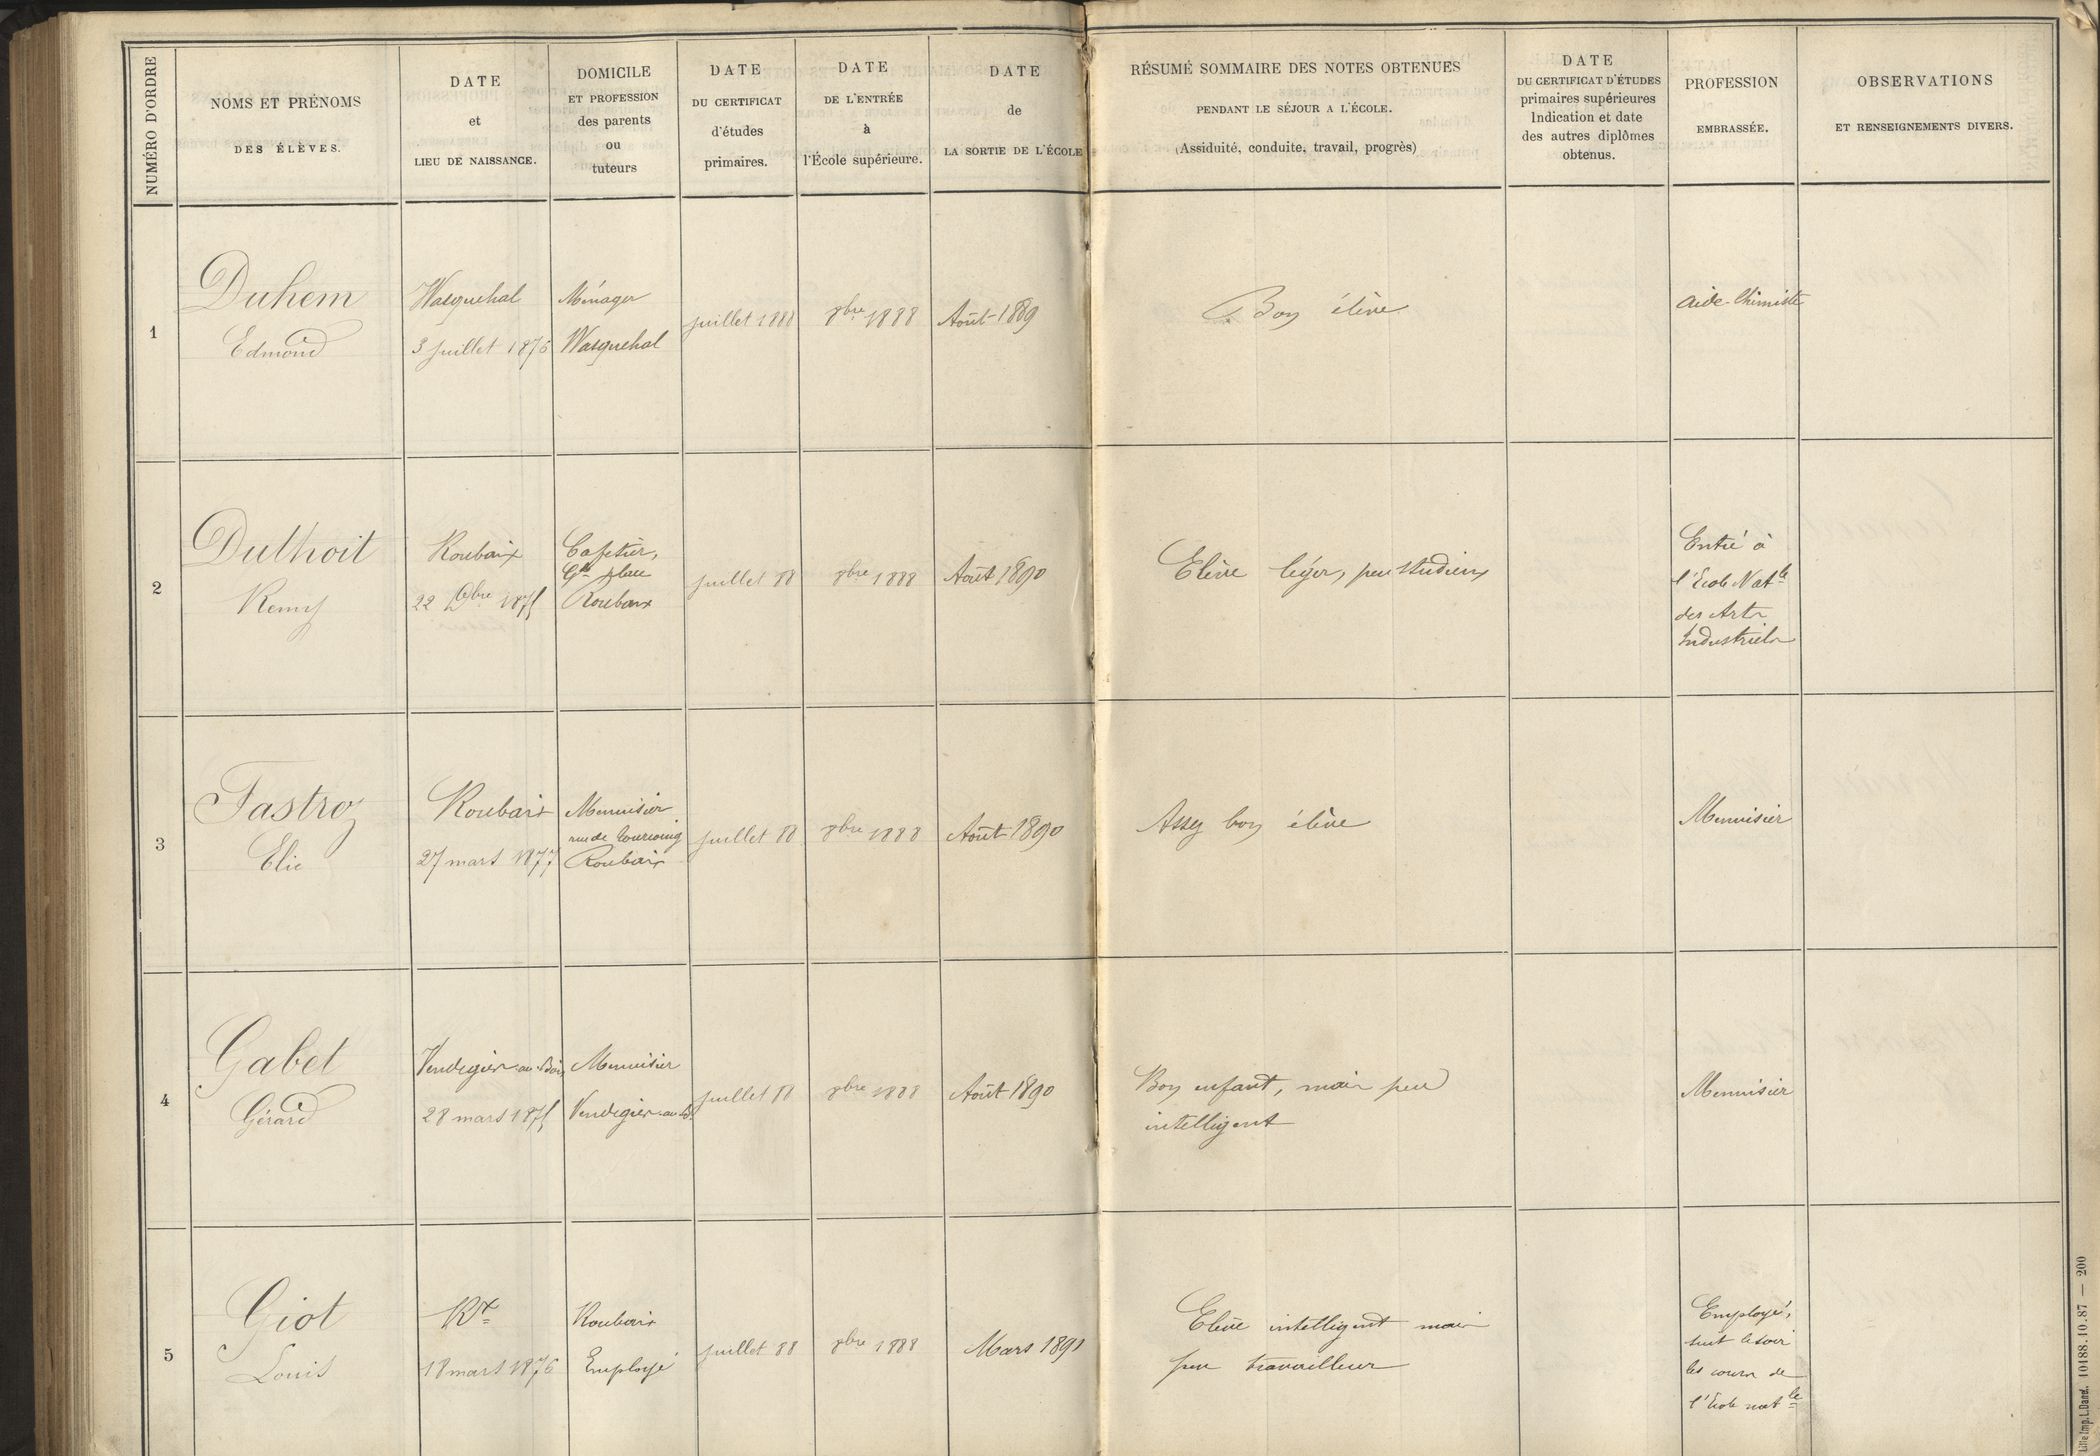 NUMÉRO D'ORDRE
NOMS ET PRÉNOMS
DES ÉLÈVES.
DATE
et
LIEU DE NAISSANCE.
DOMICILE
ET PROFESSION
des parents
ou
tuteurs
DATE
DU CERTIFICAT
d'études
primaires.
DATE
DE L'ENTRÉE
à
l'École supérieure.
DATE
de
LA SORTIE DE L'ÉCOLE
RÉSUMÉ SOMMAIRE DES NOTES OBTENUES
PENDANT LE SÉJOUR A L'ÉCOLE.
(Assiduité, conduite, travail, progrès)
DATE
DU CERTIFICAT D'ÉTUDES
primaires supérieures
Indication et date
des autres diplômes
obtenus.
PROFESSION
EMBRASSÉE.
OBSERVATIONS
ET RENSEIGNEMENTS DIVERS.
1
Duhem
Edmond
Wasquehal
3 juillet 1876
Ménager
Wasquehal
juillet 1888
8bre 1888
Août 1889
Bon élève
aide-Chimiste
2
Duthoit
Remy
Roubaix
22 Xbre 1875
Cafetier,
Gde place
Roubaix
juillet 88
8bre 1888
Août 1890
Elève léger, peu studieux
Entré à
l'Ecole Natle
des Arts
Industriels
3
Fastrez
Elie
Roubaix
27 mars 1877
Menuisier
rue de Tourcoing
Roubaix
juillet 88
8bre 1888
Août 1890
Assez bon élève
Menuisier
4
Gabet
Gérard
Vendegies-au-Bois
28 mars 1875
Menuisier
Vendegies-au-B.
juillet 88
8bre 1888
Août 1890
Bon enfant, mais peu
intelligent
Menuisier
5
Giot
Louis
Rx
18 mars 1876
Roubaix
Employé
juillet 88
8bre 1888
Mars 1891
Elève intelligent mais
peu travailleur
Employé,
suit le soir
les cours de
l'Ecole natle
Lille Imp. L. Danel. 10188.10.87 — 200